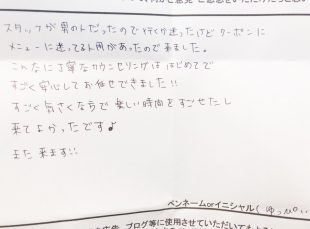 スタッフが男の人だったので行くか迷ったけどクーポンに
メニューに迷ってる人用があったので来ました。
こんなに丁寧なカウンセリングははじめてで
すごく安心してお任せできました!!
すごく気さくな方で楽しい時間をすごせたし
来てよかったです♪
また来ます!!
ペンネームorイニシャル( ゆっぴぃ
ブログ等に使用させていただいても